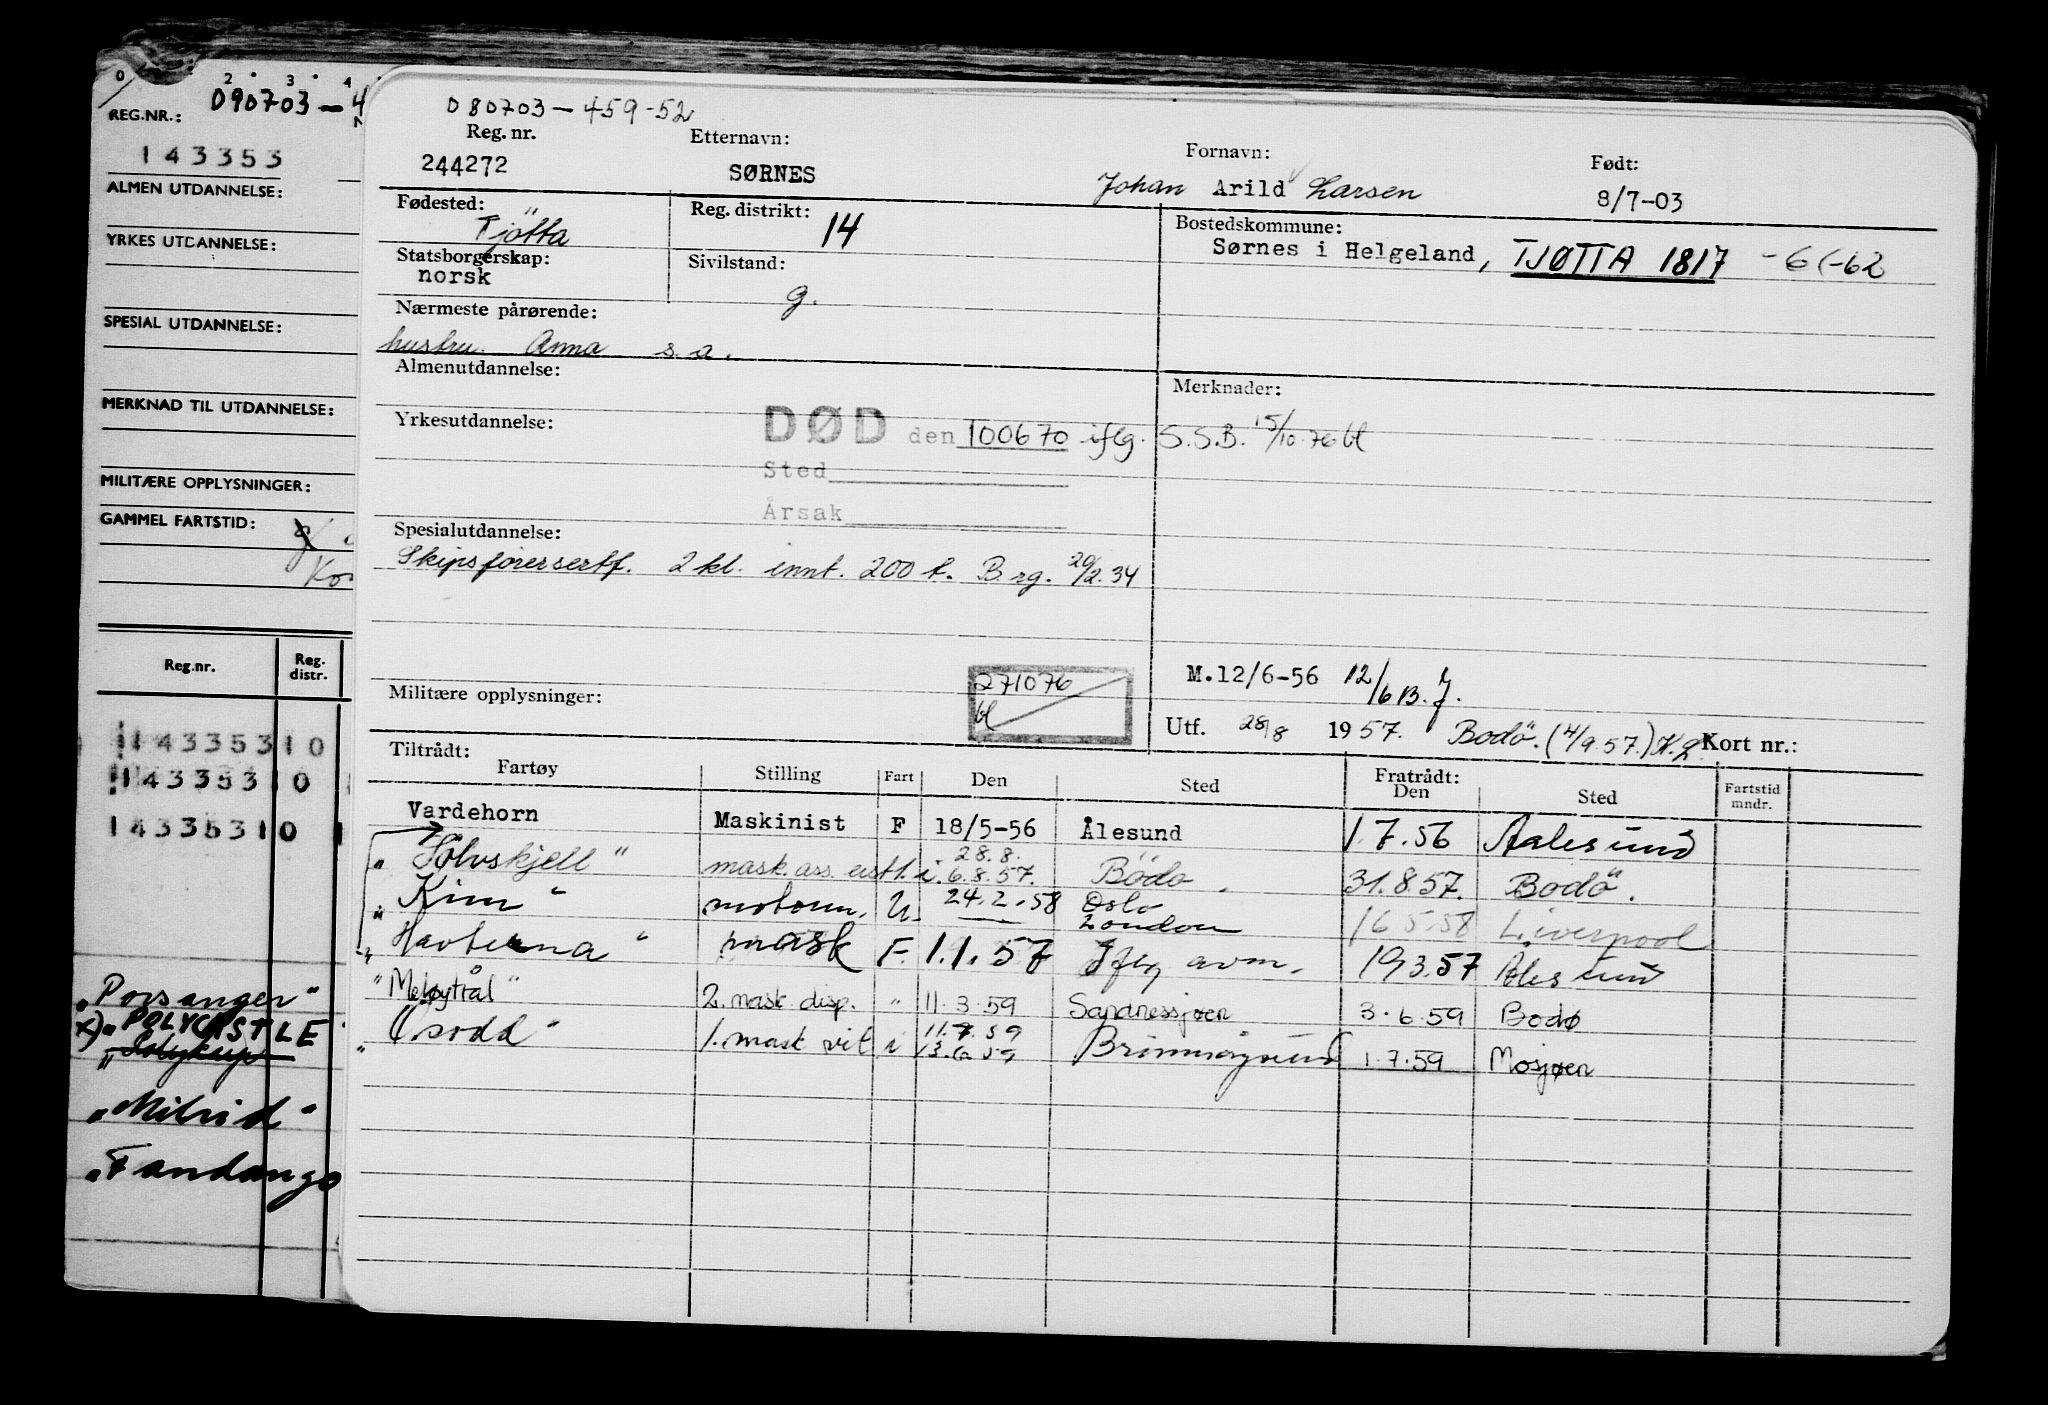 0 2 3 4
REG.NR.: 090703-4
143353
ALMEN UTDANNELSE:
YRKES UTDANNELSE:
SPESIAL UTDANNELSE:
MERKNAD TIL UTDANNELSE:
MILITÆRE OPPLYSNINGER:
GAMMEL FARTSTID:
Reg.nr. Reg. distr.
143353 10
143353 10
143353 10
"Porsanger"
x) "POLYCASTLE"
"Milrid"
"Fandango
080703-459-52
Reg. nr. Etternavn: Fornavn: Født:
244272 SØRNES Johan Arild Larsen 8/7-03
Fødested: Tjötta Reg. distrikt: 14 Bostedskommune:
Sørnes i Helgeland, TJØTTA 1817 -6(-62
Statsborgerskap: norsk Sivilstand: g.
Nærmeste pårørende:
hustru Anna s.a.
Almenutdannelse: Merknader:
Yrkesutdannelse: DØD den 100670 iflg. S.S.B. 15/10.76 bl
Sted
Årsak
Spesialutdannelse:
Skipsførersertf. 2 kl. innt. 200 t. B.rg. 20/2.34
M.12/6-56 12/6 B.J.
Militære opplysninger: 271076 bl
Utf. 28/8 1957. Bodö. (4/9.57.) Kort nr.:
Tiltrådt: Fratrådt:
Fartøy Stilling Fart Den Sted Den Sted Fartstid mndr.
Vardehorn Maskinist F 18/5-56 Ålesund 1.7.56 Aalesund
28.8.
"Sölvskjell" mask. ass. i. 6.8.57. Bödo. 31.8.57. Bodö.
"Kim" motorm. U. 24.2.58 Oslo
London 16 5.58 Liverpool
"Havterna" mask F. 1.1.57 Iflg avm. 193.57 Ålesund
"Meløytrål" 2. mask. disp. " 11.3.59 Sandnessjøen 3.6.59 Bodø
11.7.59
"Osodd" 1. mask vit i 13.6.59 Brönnöysund 1.7.59 Mosjøen